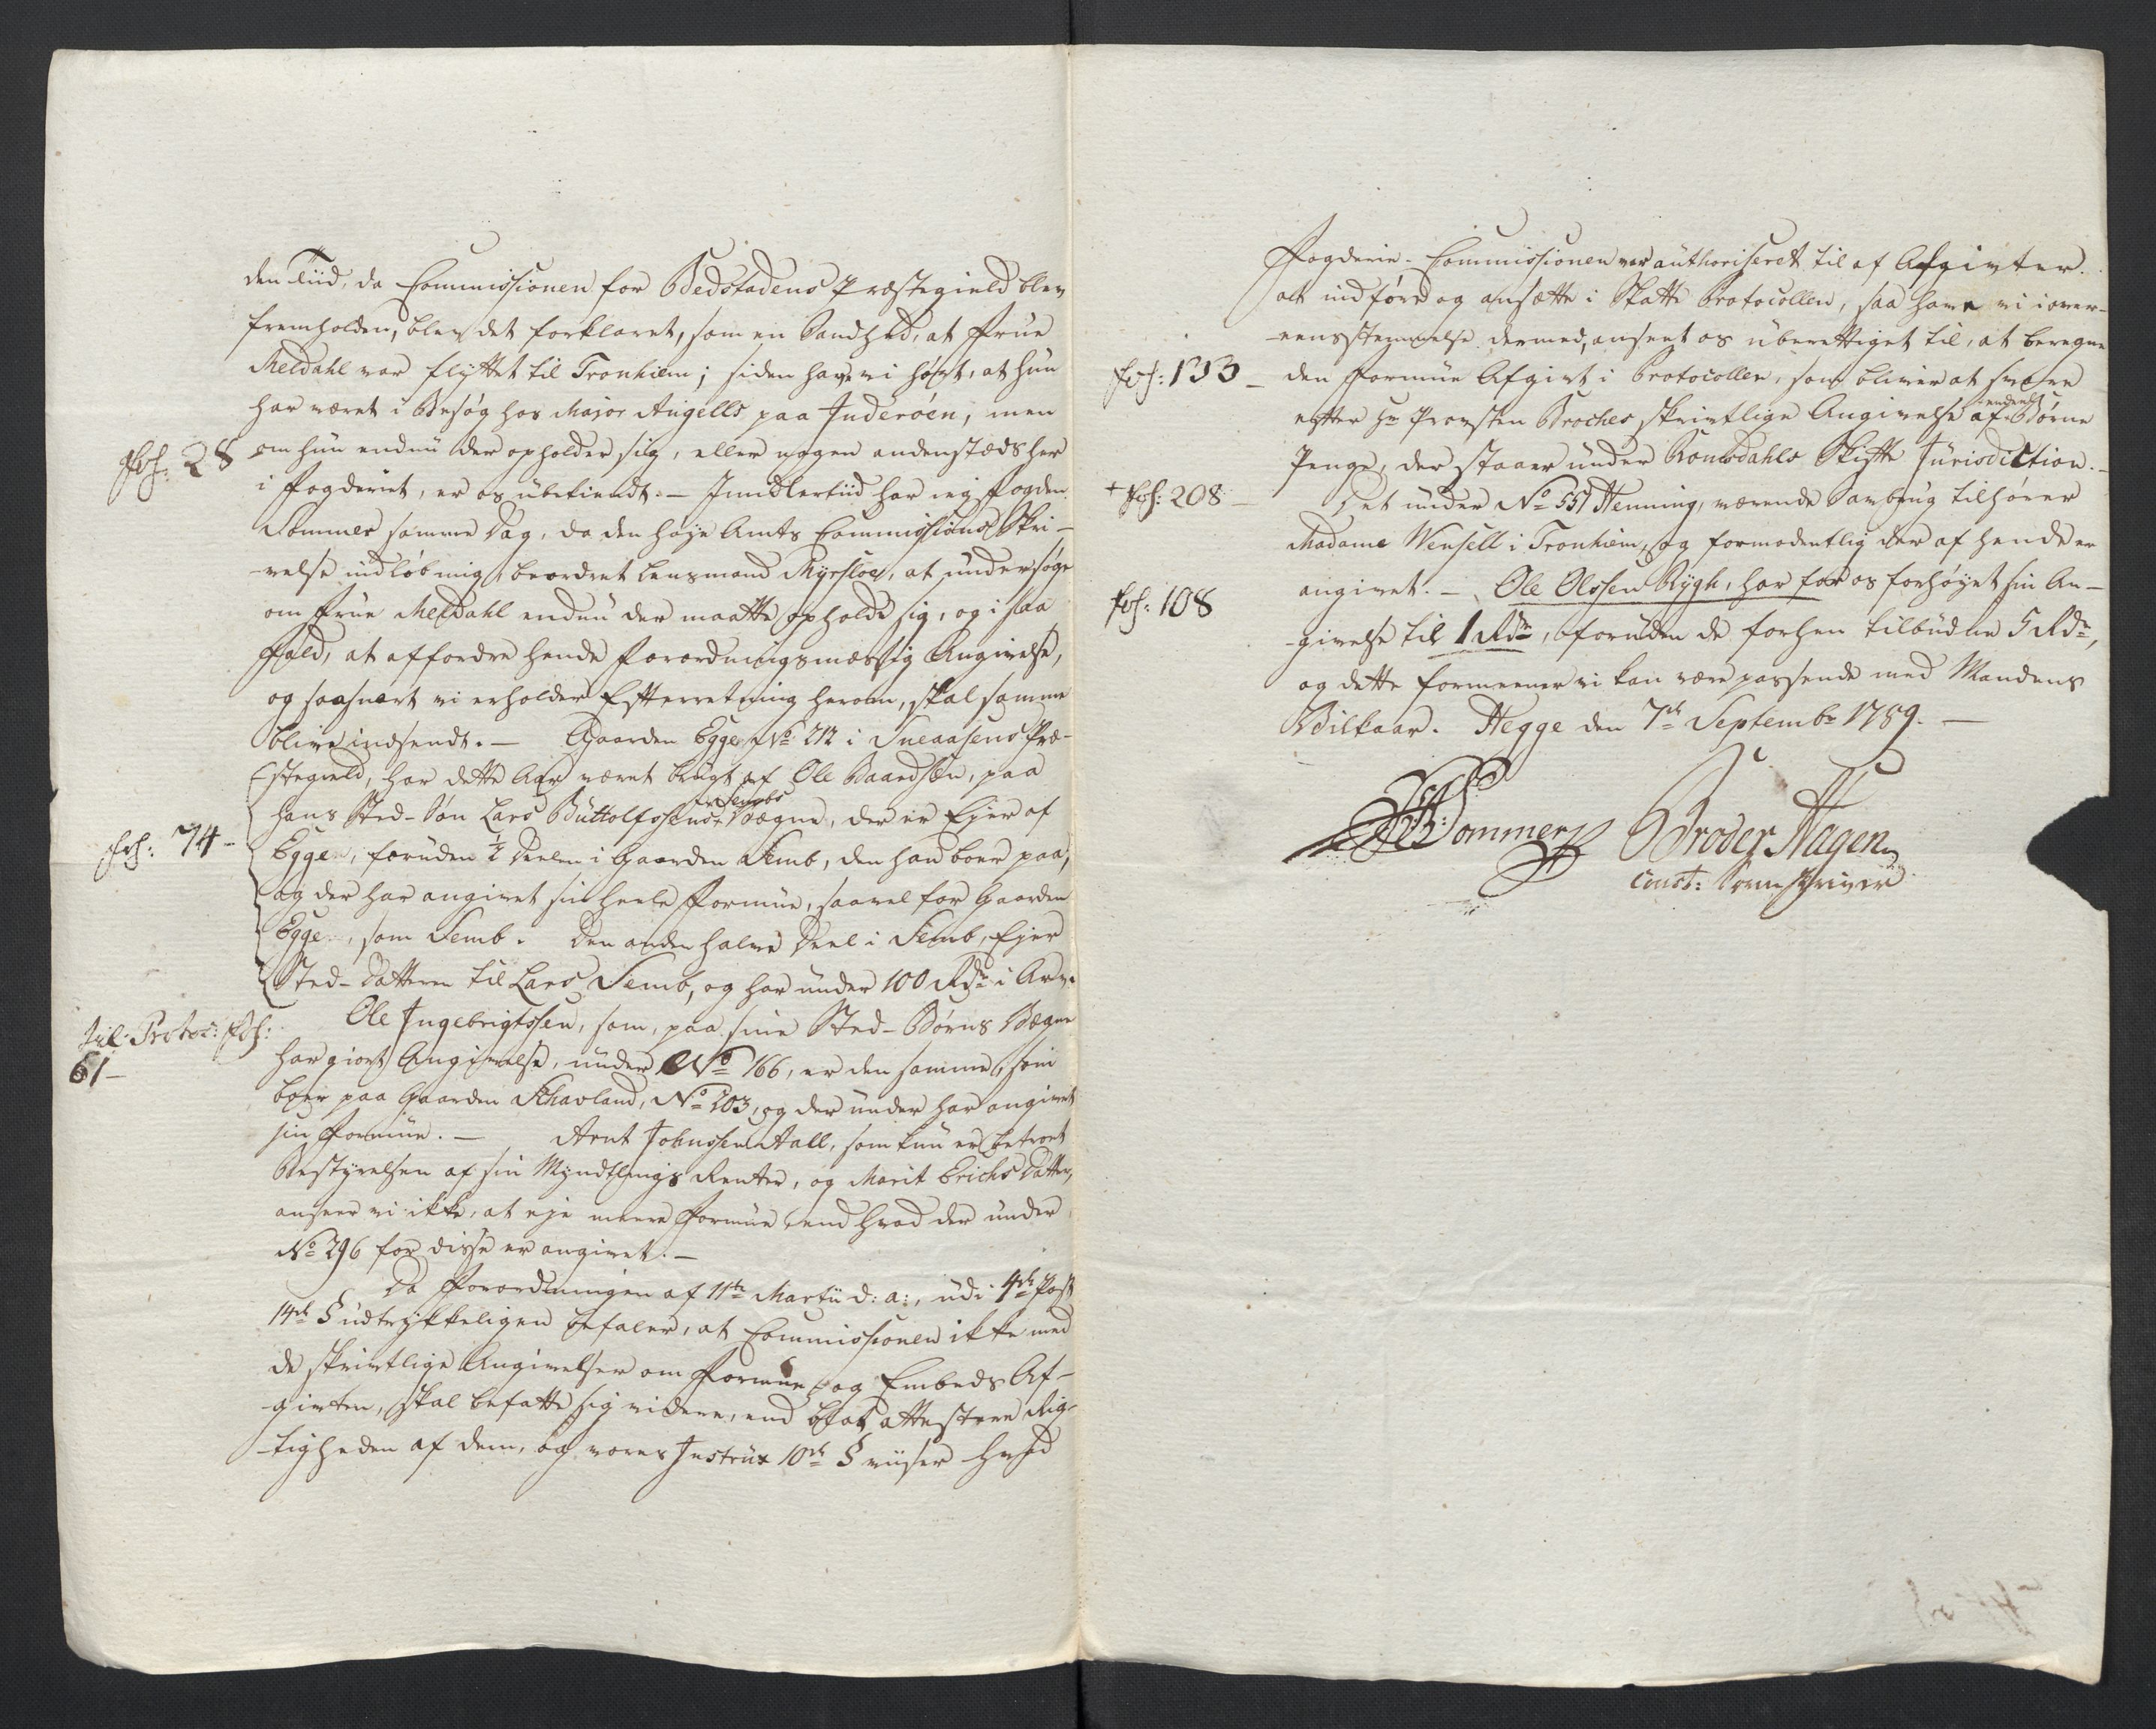 den Tiid, da Commissionen for Bedstadens Præstegield blev
fremholden, blev det forklaret, som en Sandhed, at Frue
Meldahl var flyttet til Tronhiem; siden have vi hørt, at hun
har været i Besøg hos Major Angells paa Inderöen, men
Fol: 28 om hun endnu der opholder sig, eller nogen andenstæds her
i Fogderiet, er os ubekiendt. – Imidlertiid har ieg Fogden
Sommer samme Dag, da den høje Amts Commissions Skri-
velse indløb mig, beordret Lensmand Myrsloe, at undersøge
om Frue Meldahl endnu der maatte opholde sig, og i saa
Fald, at affordre hende forordningsmæssig Angivelse,
og saasnart vi erholder Efterretning herom, skal samme
blive indsendt. – Gaarden Egge No 212 i Sneaasens Præ-
stegield, har dette Aar været brugt af Ole Baardsen, paa
hans Sted-Søn Lars Buttolfsens Sembs Vægne, der er Ejer af
Fol: 74 – Eggen, foruden ½ Deelen i Gaarden Semb, den han boer paa,
og der har angivet sin heele Formue, saavel for Gaarden
Eggen, som Semb. Den anden halve Deel i Semb, Ejer
Sted-Datteren til Lars Semb, og har under 100 Rdr i Arv.
Fol:
61 –
Ole Ingebrigtsen, som, paa sine Sted-Børns Vægne
har giort Angivelse, under No 166, er den samme, som
boer paa Gaarden Schavland, No 203, og der under har angivet
sin Formue. – Arnt Johnssen Aall, som kun er betroet
Bestyrelsen af sin Myndtlings Renter, og Marit Erichs Datter,
anseer vi ikke, at eje meere Formue end hvad der under
No 296 for disse er angivet. –
Da Forordningen af 11te Martii d: a:, udi 4de Post
14de § udtrykkeligen befaler, at Commissionen ikke med
de skrivtlige Angivelser om Formue og Embeds Af-
givten, skal befatte sig videre, end blot attestere Rig-
tigheden af dem, og vores Instrux 10de § viiser hvad
Fogderie-Commissionen var authoriseret til af Afgivter
at indføre og ansætte i Skatte Protocollen, saa have vi i over-
eensstemmelse dermed, anseet os uberettiget til, at beregne
Fol: 133 – den Formue Afgivt i Protocollen, som bliver at svare
efter Hr Provsten Broches skrivtlige Angivelse af Børne
Penge, der staaer under Romsdahls Skifte Jurisdiction. –
+ Fol: 208 – Det under No 551 Henning, værende Saubrug tilhører
Madame Wensell i Tronhiem, og formodentlig der af hende er
Fol: 108 angivet. – Ole Olssen Rygh, har for os forhøyet sin An-
givelse til 1 Rdr, foruden de forhen tilbudne 5 Rdr,
og dette formeener vi kan være passende med Mandens
Vilkaar. Hegge den 7de Septembr 1789. –
Sommer Broder Hagen
const: Sorenskriver